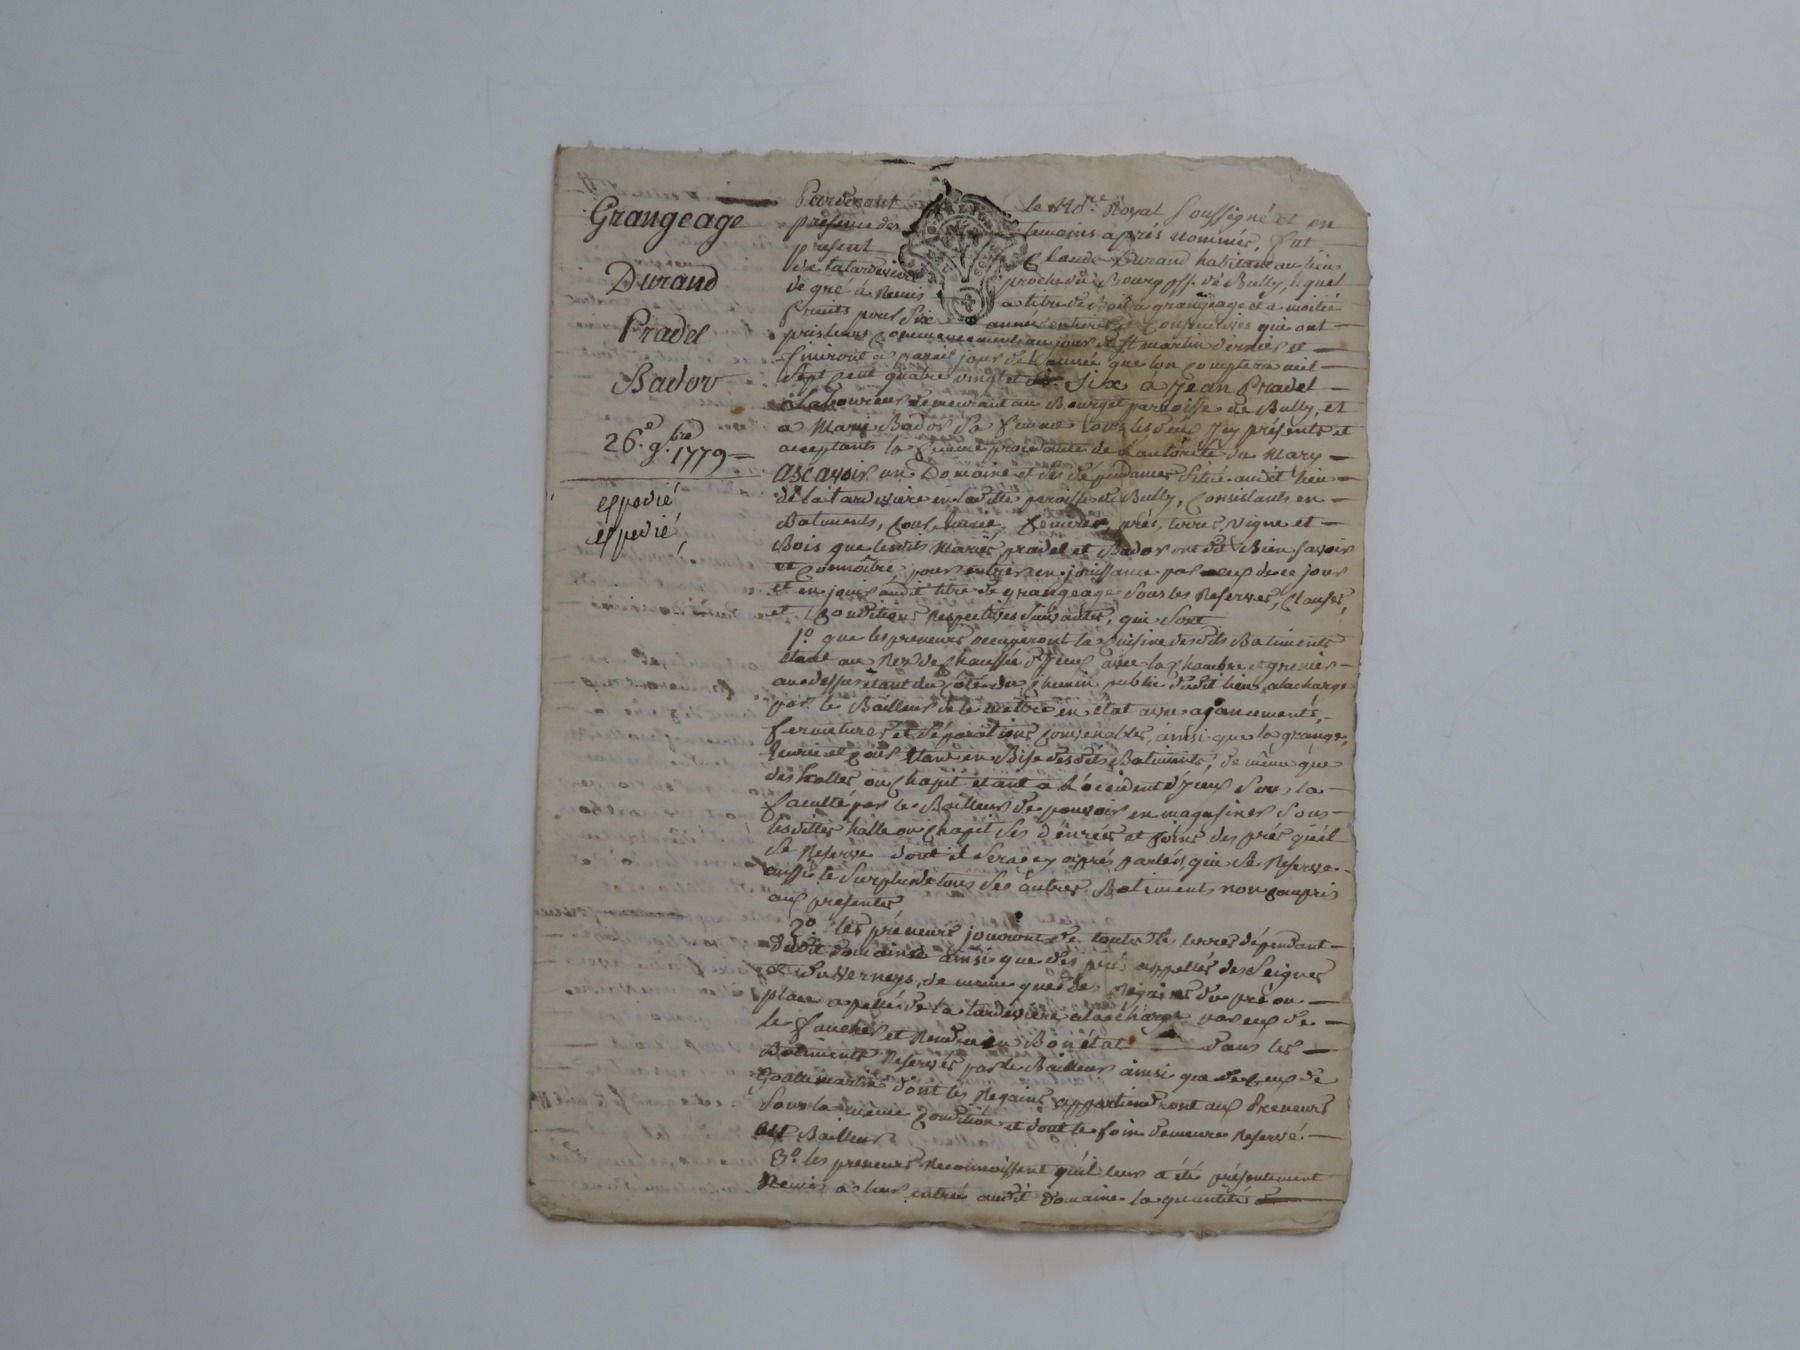 Grangeage
Durand
Pradel
Bador
26.e 9.bre 1779
expedié
expedié
Pardevant le No.re Royal soussigné et en
présence des temoins après nommés, fut
present Claude Durand habitant au lieu
de la tardiviere proche du Bourg de Bully, lequel
de gré à Remis a titre de Bail a grangeage et a moitié
fruits pour six années entieres et consecutives qui ont
pris leurs commencements au jour de st martin dernier et
finiront a pareil jour de l'année que l'on comptera mil
sept cent quatre vingt et six a Jean Pradel
Laboureur demeurant au Bourget paroisse de Bully, et
a Marie Bador sa femme tous les deux icy présents et
acceptants la femme procedante de l'autorité du Mary
ascavoir un Domaine et ses dépendances situé audit lieu
de la tardiviere en laditte paroisse de Bully, consistants en
Batiments, cour, prés, terres, vigne et
Bois que lesdits Mariés pradel et Bador ont dit Bien savoir
et connoître pour entrer en jouissance par eux de ce jour
et en jouir audit titre de grangeage sous les Reserves, Clauses,
et Conditions Respectives suivantes, qui sont
1.o que les preneurs occuperont la cuisine desdits Batiments
étant au Rez de chaussée d'iceux avec la chambre et grenier
au dessus étant du côté du chemin public dudit lieu, a la charge
par le Bailleur de le mettre en état avec agancements,
fermetures et séparations convenables, ainsi que la grange,
écurie et cour étant en Bise desdits Batiments, de même que
des halles ou chapit étant a l'occident d'iceux sous la
faculté par le Bailleur de pouvoir emmagasiner sous
lesdittes halle ou chapit ses denrées et foins des prés qu'il
se Reserve dont il sera cy après parlé, qui se Reserve
aussi le surplus de tous ses autres Batiments non compris
aux presentes
2.o les préneurs jouiront de toutes les terres dépendant
dudit domaine ainsi que des prés appellés des Seignes
et du Verney, de même que des Regains du pré ou
place appellé de la tardiviere a la charge par eux de
le faucher et Rendre en Bon état dans les
Batiments Reservés par le Bailleur ainsi que de ceux de
dont les Regains appartiendront aux Preneurs
sous la même condition et dont le foin demeure Reservé
au Bailleur
3.o les preneurs Reconnoissent qu'il leur a été présentement
Remis a leur entrée audit Domaine la quantité